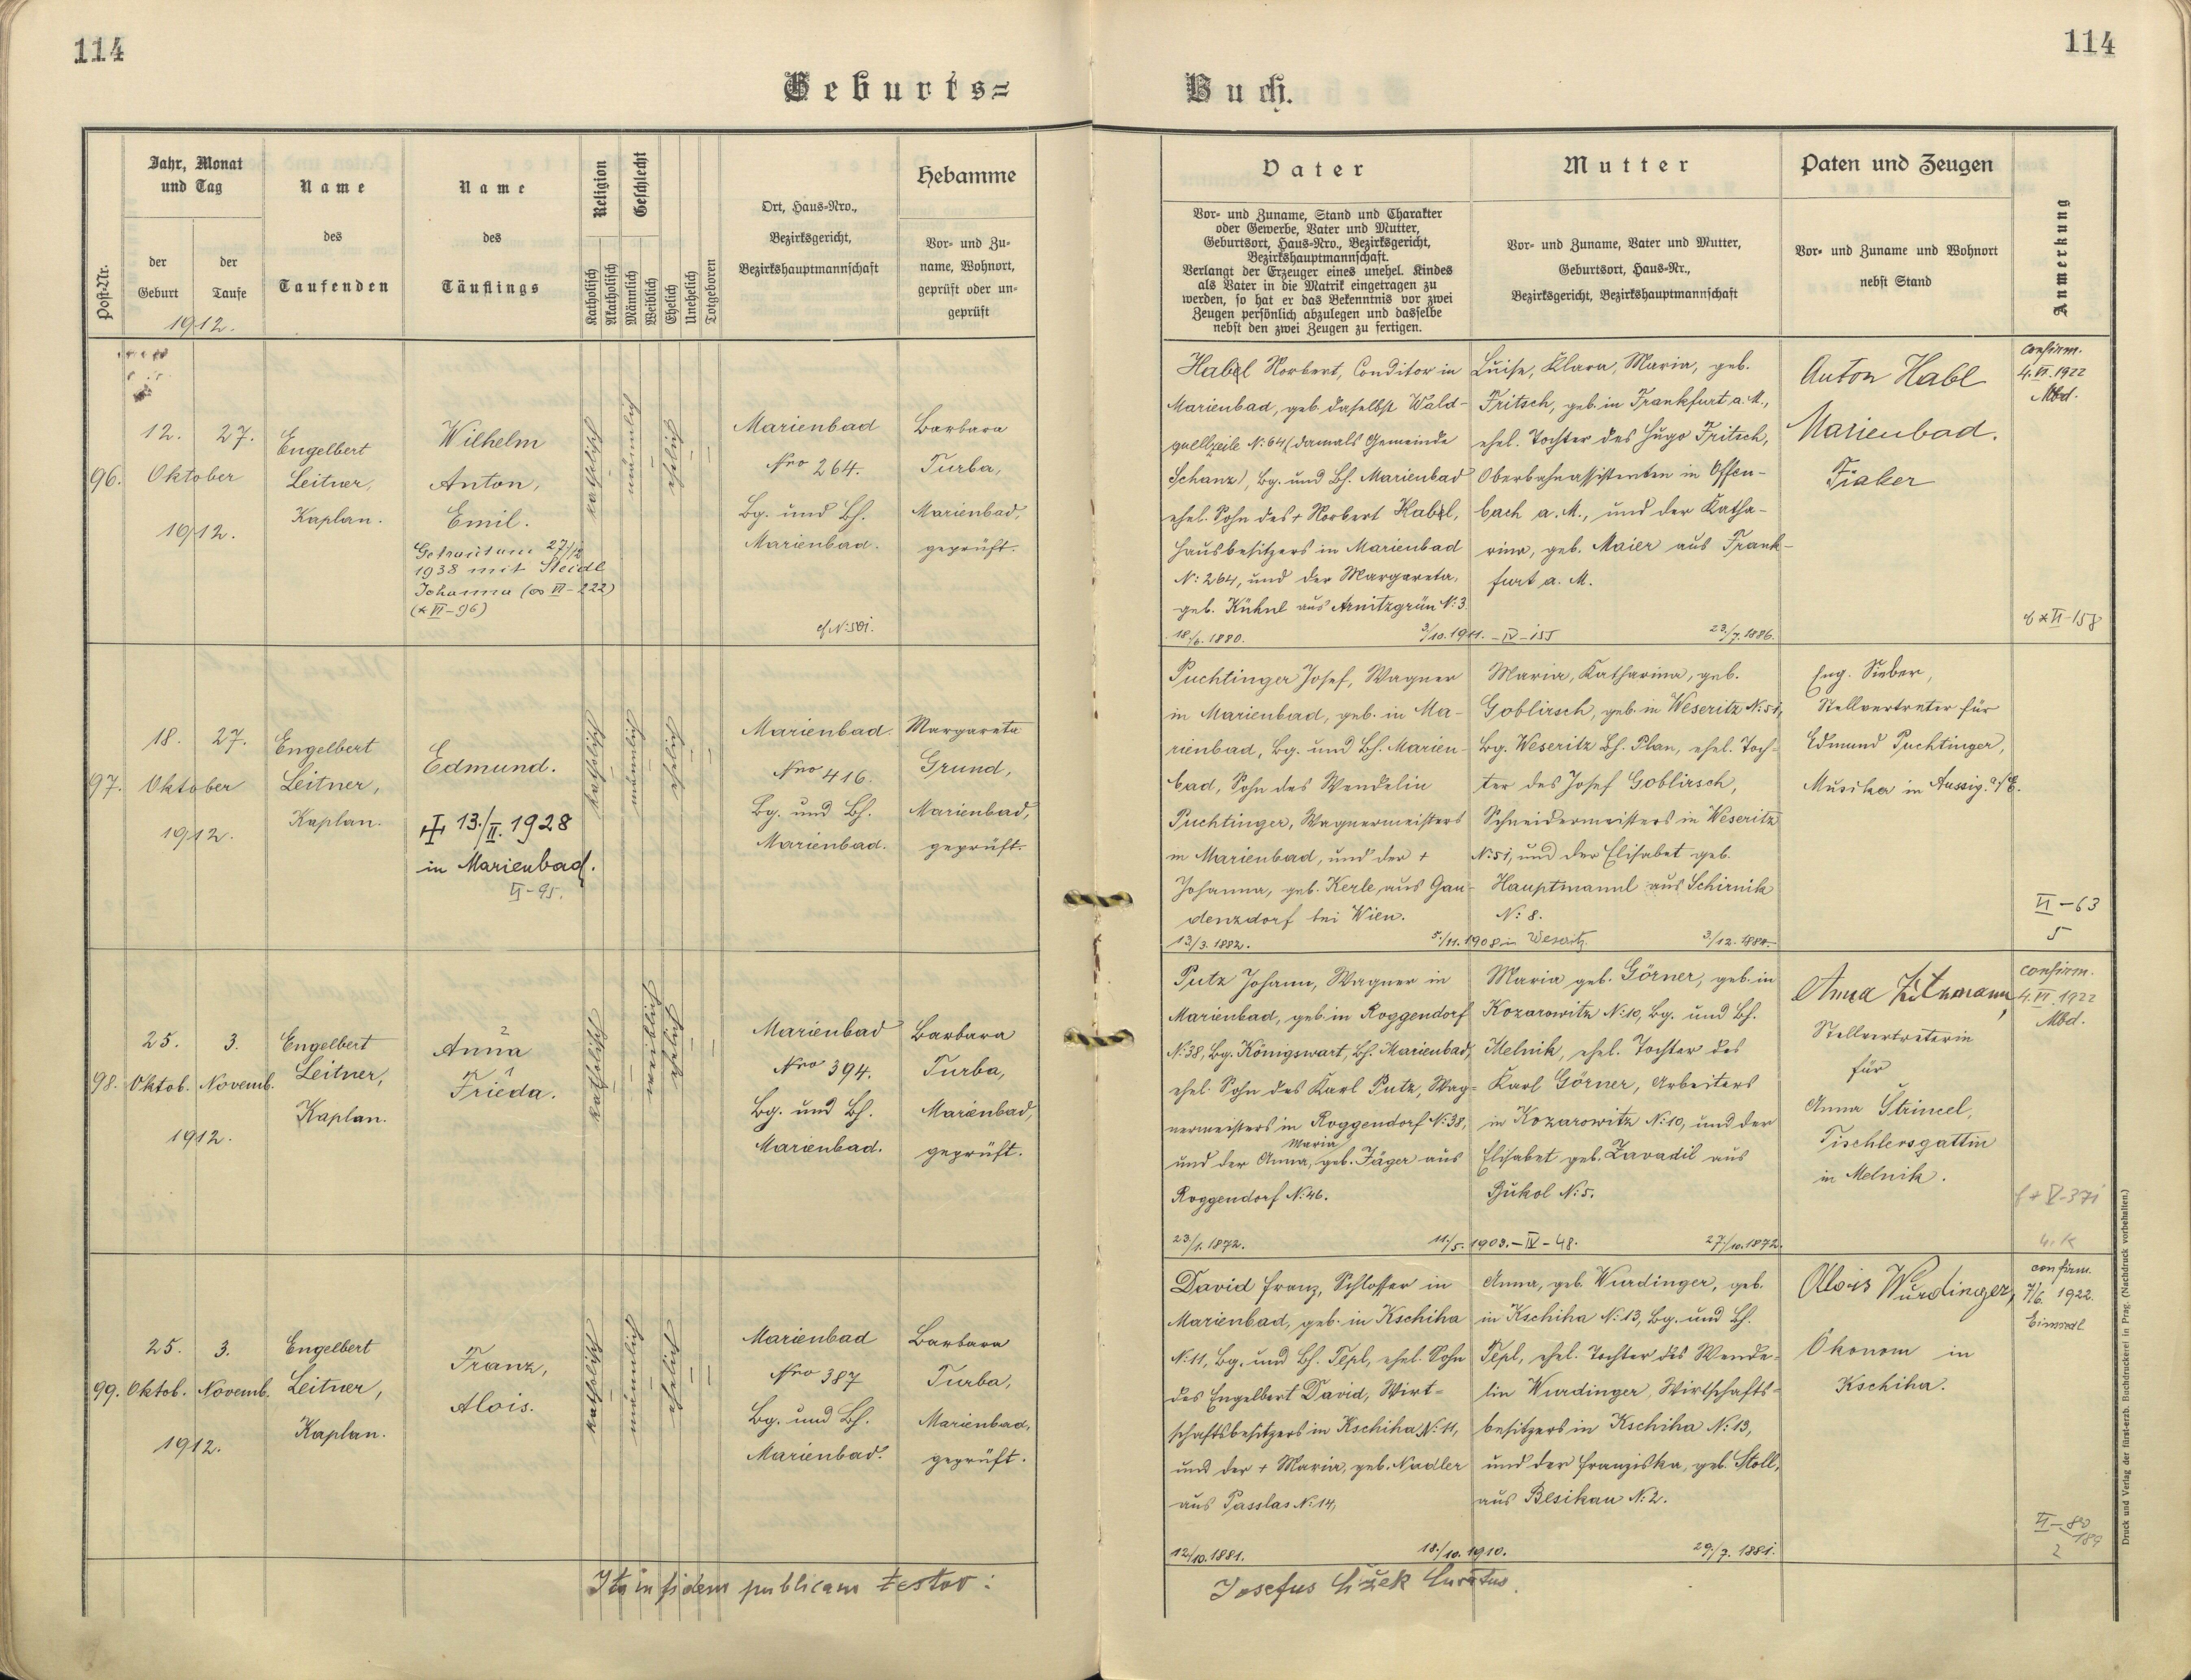 114
114
Geburts=
Buch.
Post-Nr.
Jahr, Monat
und Tag
der
Geburt
der
Taufe
1912.
Name
des
Taufenden
Name
des
Täuflings
Religion
Katholisch
Akatholisch
Geschlecht
Männlich
Weiblich
Ehelich
Unehelich
Totgeboren
Ort, Haus-Nro.,
Bezirksgericht,
Bezirkshauptmannschaft
Hebamme
Vor- und Zu-
name, Wohnort,
geprüft oder un-
geprüft
Vater
Vor- und Zuname, Stand und Charakter
oder Gewerbe, Vater und Mutter,
Geburtsort, Haus-Nro., Bezirksgericht,
Bezirkshauptmannschaft.
Verlangt der Erzeuger eines unehel. Kindes
als Vater in die Matrik eingetragen zu
werden, so hat er das Bekenntnis vor zwei
Zeugen persönlich abzulegen und dasselbe
nebst den zwei Zeugen zu fertigen.
Mutter
Vor- und Zuname, Vater und Mutter,
Geburtsort, Haus-Nr.,
Bezirksgericht, Bezirkshauptmannschaft
Paten und Zeugen
Vor- und Zuname und Wohnort
nebst Stand
Anmerkung
96.
12. 27.
Oktober
1912.
Engelbert
Leitner,
Kaplan.
Wilhelm
Anton,
Emil.
Getraut am 27/12
1938 mit Steidl
Johanna (∞ VI-222)
(* VI-96)
katholisch
männlich
ehelich
Marienbad
Nro 264.
Bg. und Bh.
Marienbad.
Barbara
Turba,
Marienbad,
geprüft.
Habl Norbert, Conditor in
Marienbad, geb. daselbst Wald-
quellzeile N: 64 (damals Gemeinde
Schanz), Bg. und Bh. Marienbad
ehel. Sohn des + Norbert Habl,
Hausbesitzers in Marienbad
N: 264, und der Margareta,
geb. Kühnl aus Arnitzgrün N: 3.
18/6. 1880.
3/10. 1911. - IV - 155
Luise, Klara, Maria, geb.
Fritsch, geb. in Frankfurt a. M.,
ehel. Tochter des Hugo Fritsch,
Oberbahnassistenten in Offen-
bach a. M., und der Katha-
rina, geb. Maier aus Frank-
furt a. M.
23/7. 1886.
Anton Habl
Marienbad.
Fiaker
confirm.
4. VI. 1922
Mbd.
* VI-158
97.
18. 27.
Oktober
1912.
Engelbert
Leitner,
Kaplan.
Edmund.
13./II. 1928
in Marienbad.
VI-95.
katholisch
männlich
ehelich
Marienbad.
Nro 416.
Bg. und Bh.
Marienbad.
Margareta
Grund,
Marienbad,
geprüft.
Puchtinger Josef, Wagner
in Marienbad, geb. in Ma-
rienbad, Bg. und Bh. Marien-
bad, Sohn des Wendelin
Puchtinger, Wagnermeisters
in Marienbad, und der +
Johanna, geb. Kerle aus Gau-
denzdorf bei Wien.
13/3. 1882.
5/11. 1908 in Weseritz.
Maria, Katharina, geb.
Goblirsch, geb. in Weseritz N: 51,
Bg. Weseritz Bh. Plan, ehel. Toch-
ter des Josef Goblirsch,
Schneidermeisters in Weseritz
N: 51, und der Elisabet geb.
Hauptmannl aus Schirnik
N: 8.
Eng. Sieber,
Stellvertreter für
Edmund Puchtinger,
Musiker in Aussig. a/E.
VI-63
5
98.
25. 3.
Oktob. Novemb.
1912.
Engelbert
Leitner,
Kaplan.
Anna
Frieda.
katholisch
weiblich
ehelich
Marienbad
Nro 394.
Bg. und Bh.
Marienbad.
Barbara
Turba,
Marienbad,
geprüft.
Putz Johann, Wagner in
Marienbad, geb. in Roggendorf
N: 38, Bg. Königswart, Bh. Marienbad,
ehel. Sohn des Karl Putz, Wag-
nermeisters in Roggendorf N: 38,
Maria
und der Anna, geb. Jäger aus
Roggendorf N: 46.
23/1. 1872.
11/5. 1903. - IV - 48.
Maria geb. Görner, geb. in
Kozarowitz N: 10, Bg. und Bh.
Melnik, ehel. Tochter des
Karl Görner, Arbeiters
in Kozarowitz N: 10, und der
Elisabet geb. Zavadil aus
Bukol N: 5.
27/10. 1872.
Anna
Stellvertreterin
für
Anna Strincel,
Tischlersgattin
in Melnik.
confirm.
4. VI. 1922
Mbd.
V-371
99.
25. 3.
Oktob. Novemb.
1912.
Engelbert
Leitner,
Kaplan.
Franz,
Alois.
katholisch
männlich
ehelich
Marienbad
Nro 387
Bg. und Bh.
Marienbad.
Barbara
Turba,
Marienbad,
geprüft.
David Franz, Schlosser in
Marienbad, geb. in Kschiha
N: 11, Bg. und Bh. Tepl, ehel. Sohn
des Engelbert David, Wirt-
schaftsbesitzers in Kschiha N: 11,
und der + Maria, geb. Nadler
aus Passlas N: 14,
12/10. 1881.
18/10. 1910.
Anna, geb. Wurdinger, geb.
in Kschiha N: 13, Bg. und Bh.
Tepl, ehel. Tochter des Wende-
lin Wurdinger, Wirtschafts-
besitzers in Kschiha N: 13,
und der Franziska, geb. Stoll,
aus Besikau N: 2.
29/7. 1881.
Alois Wurdinger,
Ökonom in
Kschiha.
confirm.
7/6. 1922.
Einsiedl
VI-80
189
2
Ita in fidem publicam testor:
Josefus Čížek Curatus.
Druck und Verlag der fürst-erzb. Buchdruckerei in Prag. (Nachdruck vorbehalten.)